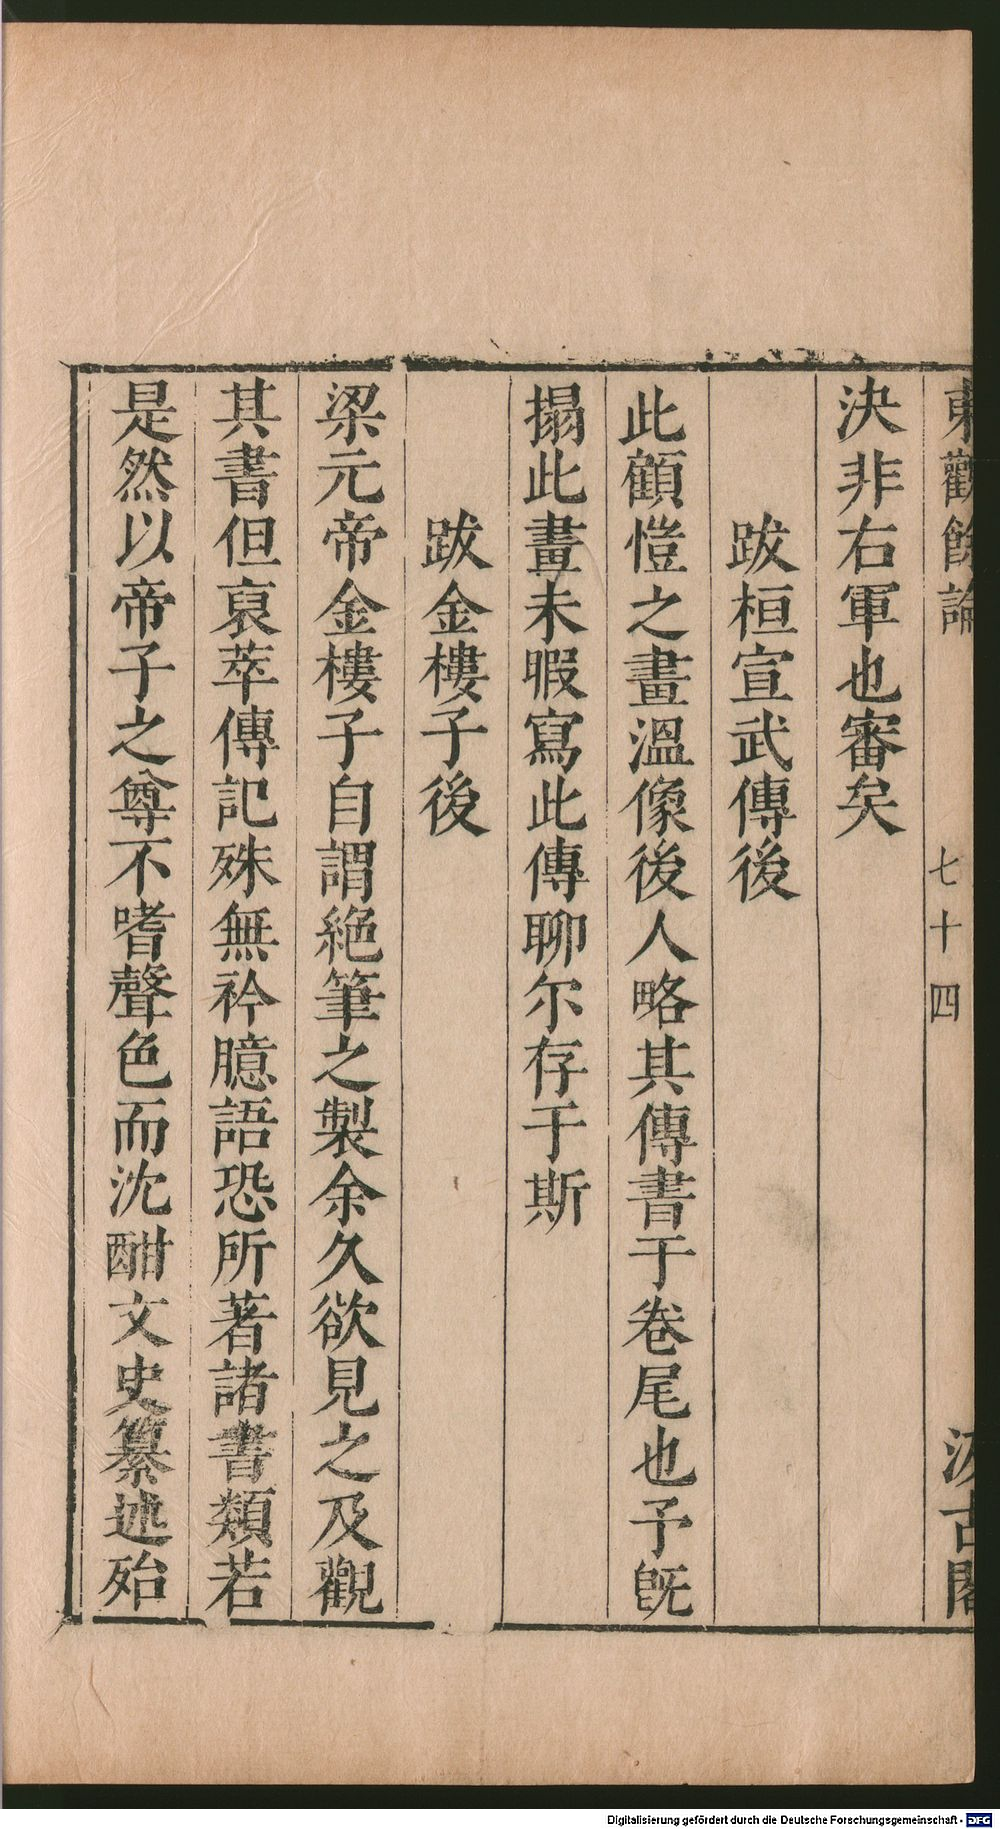 東觀餘論 七十四 汲古閣
決非右軍也審矣
跋桓宣武傳後
此顧愷之畫溫像後人略其傳書于卷尾也予旣
搨此畫未暇寫此傳聊尔存于斯
跋金樓子後
梁元帝金樓子自謂絶筆之製余久欲見之及觀
其書但裒萃傳記殊無衿臆語恐所著諸書類若
是然以帝子之尊不嗜聲色而沈酣文史纂述殆
Digitalisierung gefördert durch die Deutsche Forschungsgemeinschaft - DFG